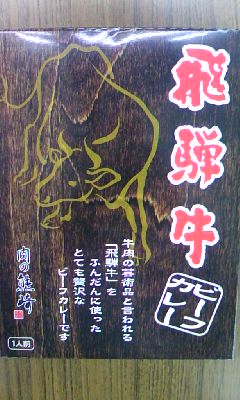 飛騨牛
ビーフ
カレー
牛肉の芸術品と言われる
「飛騨牛」を
ふんだんに使った
とても贅沢な
ビーフカレーです
肉の熊崎
1人前